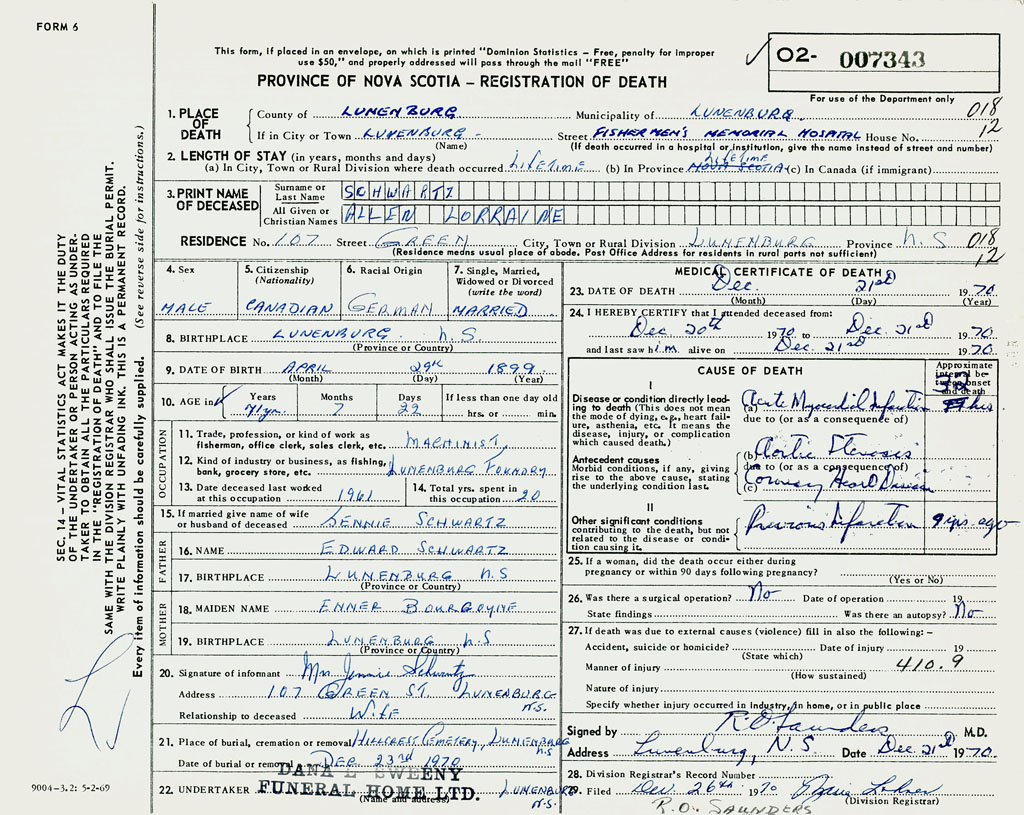 FORM 6
This form, if placed in an envelope, on which is printed "Dominion Statistics – Free, penalty for improper
use $50," and properly addressed will pass through the mail "FREE"
PROVINCE OF NOVA SCOTIA – REGISTRATION OF DEATH
O2- 007343
For use of the Department only
018
12
1. PLACE OF DEATH
County of LUNENBURG Municipality of LUNENBURG
If in City or Town LUNENBURG Street FISHERMEN'S MEMORIAL HOSPITAL House No.
(Name) (If death occurred in a hospital or institution, give the name instead of street and number)
2. LENGTH OF STAY (in years, months and days)
(a) In City, Town or Rural Division where death occurred LIFETIME (b) In Province LIFETIME NOVA SCOTIA (c) In Canada (if immigrant)
3. PRINT NAME OF DECEASED
Surname or Last Name SCHWARTZ
All Given or Christian Names ALLEN LORRAINE
RESIDENCE No. 107 Street GREEN City, Town or Rural Division LUNENBURG Province N.S 018
(Residence means usual place of abode. Post Office Address for residents in rural parts not sufficient) 12
4. Sex
MALE
5. Citizenship (Nationality)
CANADIAN
6. Racial Origin
GERMAN
7. Single, Married, Widowed or Divorced (write the word)
MARRIED
8. BIRTHPLACE LUNENBURG N.S.
(Province or Country)
9. DATE OF BIRTH APRIL 29th 1899
(Month) (Day) (Year)
10. AGE in Years Months Days If less than one day old
71 yrs. 7 22 hrs. or min.
OCCUPATION
11. Trade, profession, or kind of work as
fisherman, office clerk, sales clerk, etc. MACHINIST
12. Kind of industry or business, as fishing,
bank, grocery store, etc. LUNENBURG FOUNDRY
13. Date deceased last worked
at this occupation 1961
14. Total yrs. spent in
this occupation 20
15. If married give name of wife
or husband of deceased JENNIE SCHWARTZ
FATHER
16. NAME EDWARD SCHWARTZ
17. BIRTHPLACE LUNENBURG N.S
(Province or Country)
MOTHER
18. MAIDEN NAME ENNER BOURGOYNE
19. BIRTHPLACE LUNENBURG N.S
(Province or Country)
20. Signature of informant Mrs Jennie Schwartz
Address 107 GREEN ST. LUNENBURG N.S.
Relationship to deceased WIFE
21. Place of burial, cremation or removal HILLCREST CEMETERY, LUNENBURG N.S
Date of burial or removal DEC 23rd 1970
22. UNDERTAKER DANA L SWEENY
FUNERAL HOME LTD. LUNENBURG N.S.
(Name and address)
MEDICAL CERTIFICATE OF DEATH
23. DATE OF DEATH Dec. 21st 1970
(Month) (Day) (Year)
24. I HEREBY CERTIFY that I attended deceased from:
Dec. 20th 1970 to Dec. 21st 1970
and last saw him alive on Dec. 21st 1970
CAUSE OF DEATH
Approximate interval between onset and death
I
Disease or condition directly leading to death (This does not mean
the mode of dying, e.g., heart failure, asthenia, etc. It means the
disease, injury, or complication
which caused death.)
(a) Acute Myocardial Infarction hrs
due to (or as a consequence of)
Antecedent causes
Morbid conditions, if any, giving
rise to the above cause, stating
the underlying condition last.
(b) Aortic Stenosis
due to (or as a consequence of)
(c) Coronary Heart Disease
II
Other significant conditions
contributing to the death, but not
related to the disease or condition causing it.
Previous Infarction 9 yrs. ago
25. If a woman, did the death occur either during
pregnancy or within 90 days following pregnancy?
(Yes or No)
26. Was there a surgical operation? No Date of operation 19
State findings Was there an autopsy? No
27. If death was due to external causes (violence) fill in also the following: –
Accident, suicide or homicide? Date of injury 19
(State which)
Manner of injury 410.9
(How sustained)
Nature of injury
Specify whether injury occurred in Industry, in home, or in public place
Signed by R.O. Saunders M.D.
Address Lunenburg, N.S. Date Dec. 21st 1970
28. Division Registrar's Record Number
29. Filed Dec. 26th 1970
(Division Registrar)
R.O. SAUNDERS
SEC. 14 – VITAL STATISTICS ACT MAKES IT THE DUTY
OF THE UNDERTAKER OR PERSON ACTING AS UNDERTAKER TO OBTAIN ALL THE PARTICULARS REQUIRED
IN THE "REGISTRATION OF DEATH" AND TO FILE THE
SAME WITH THE DIVISION REGISTRAR WHO SHALL ISSUE THE BURIAL PERMIT.
WRITE PLAINLY WITH UNFADING INK. THIS IS A PERMANENT RECORD.
Every item of information should be carefully supplied. (See reverse side for instructions.)
9004-3.2: 5-2-69